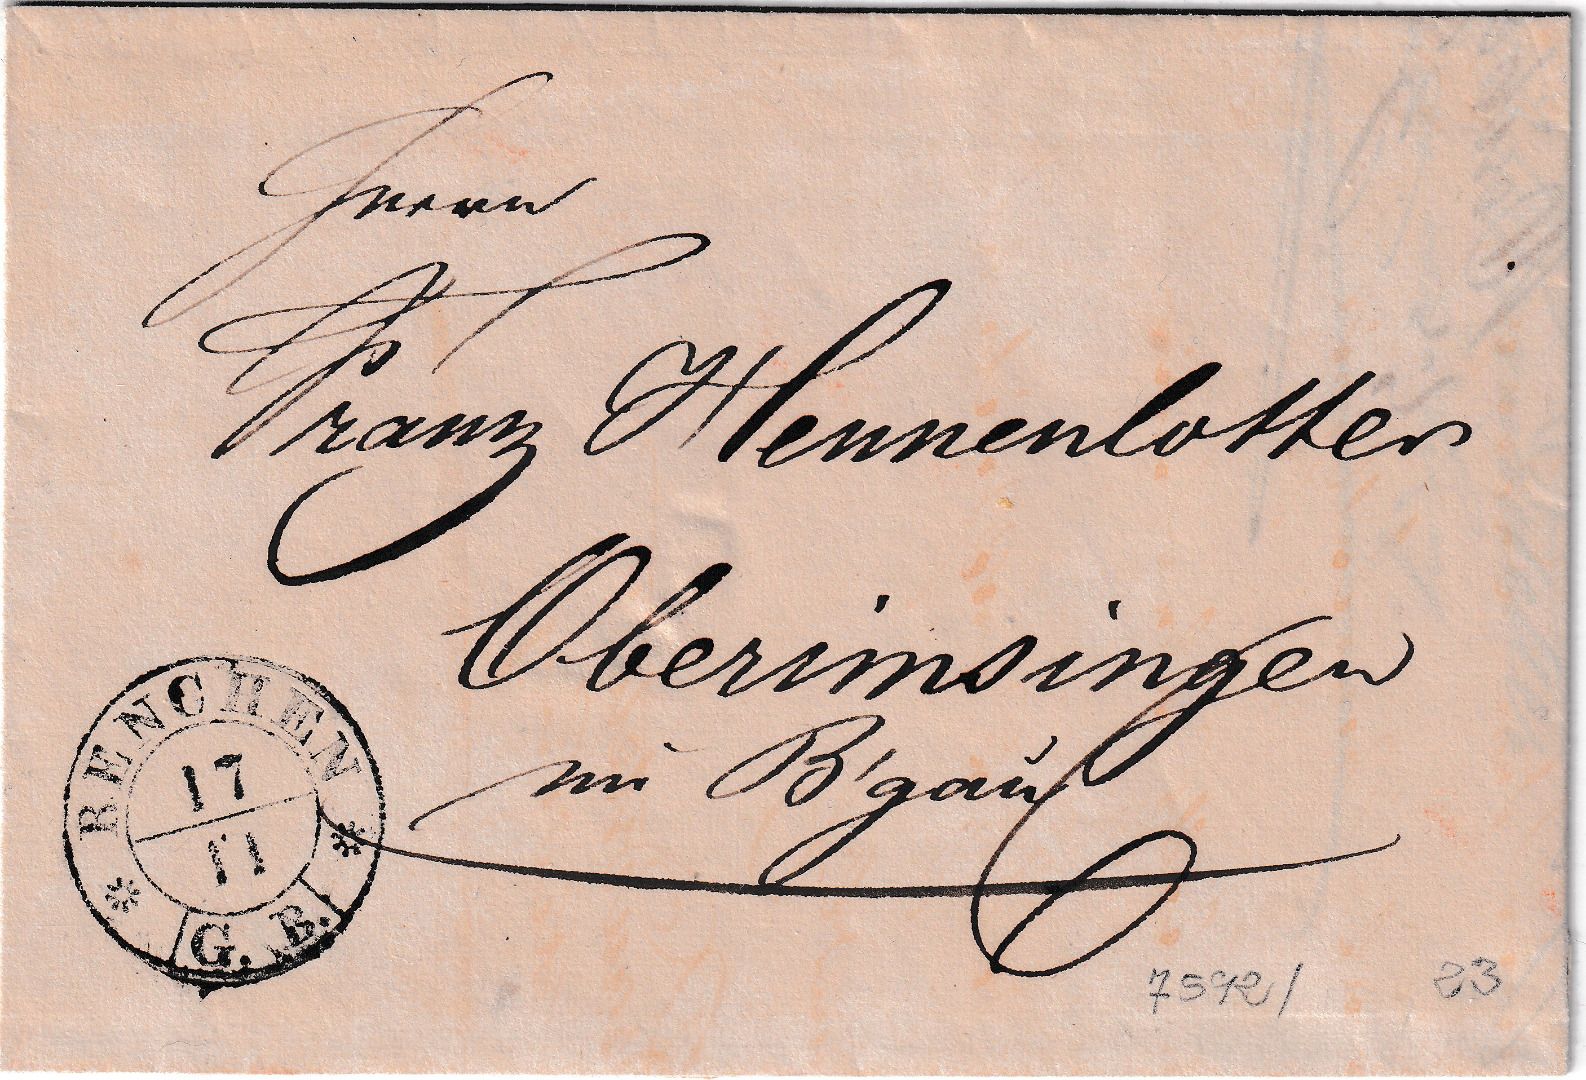 Herrn
Franz Hennenlotter
Oberimsingen
im B'gau
RENCHEN
17
11
G. B.
7592/
23